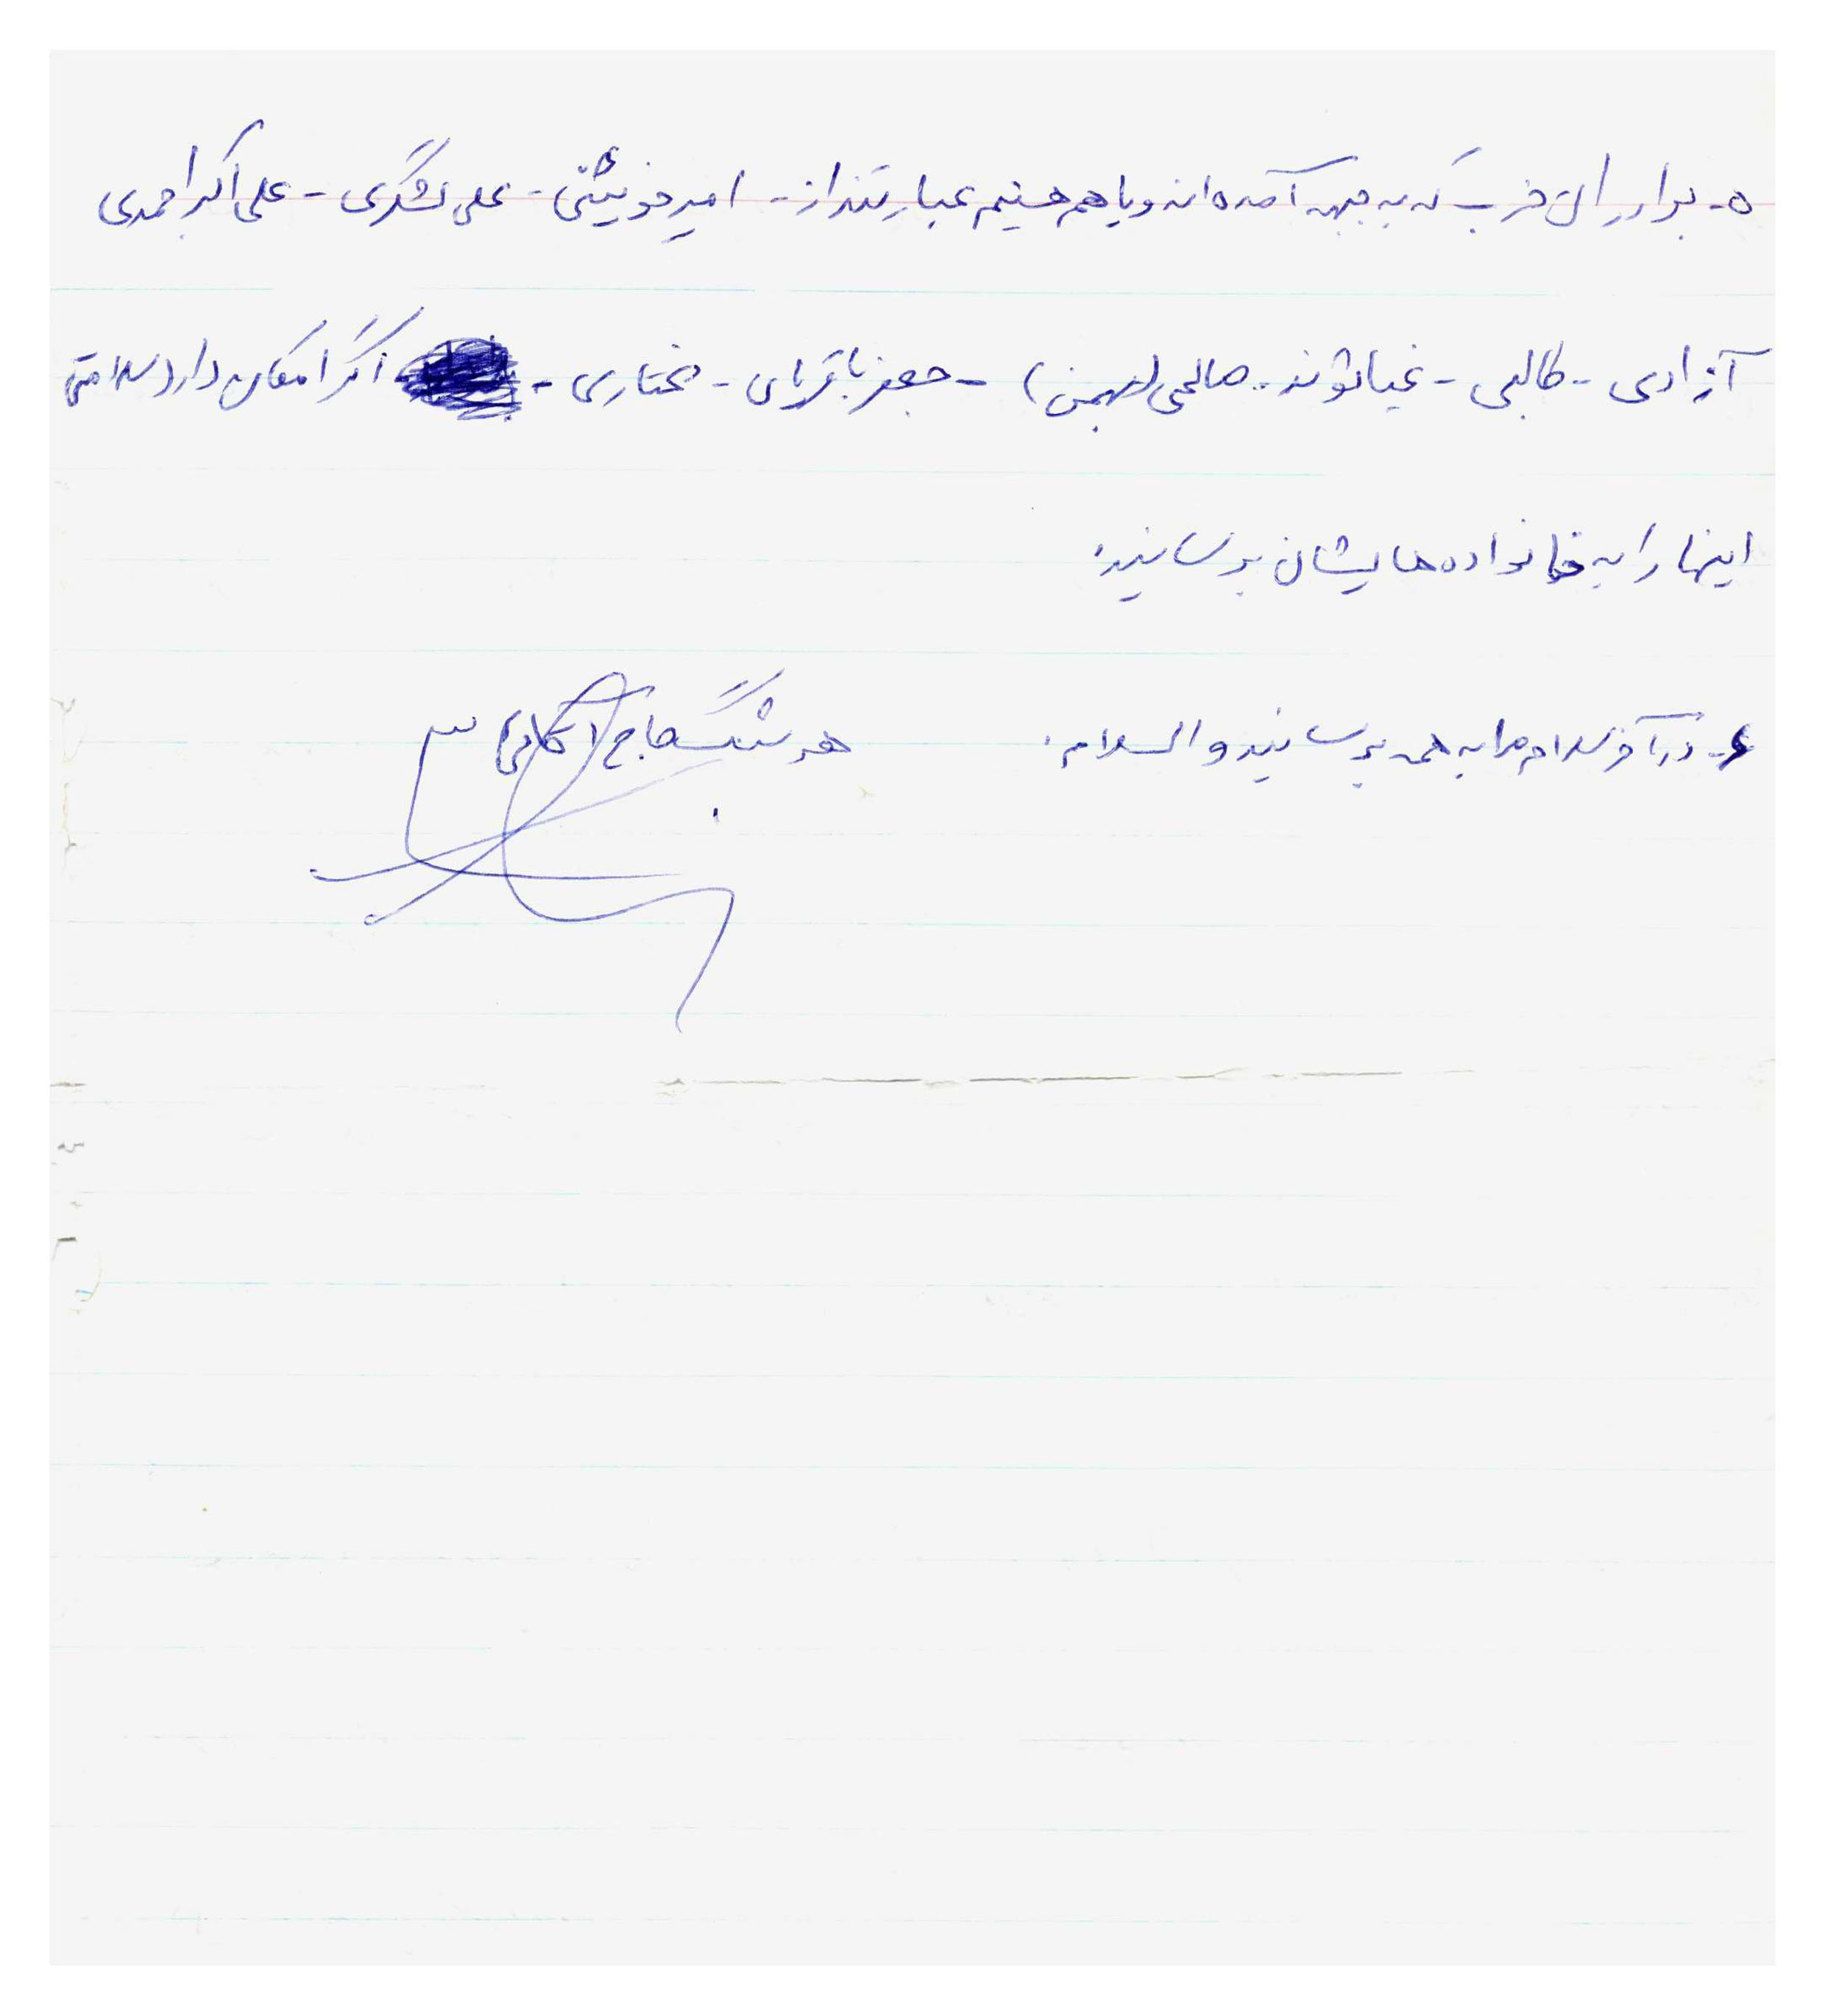 ۵- برادران حزب که به جبهه آمده‌اند و با هم هستیم عبارتند از - امیر خوئینی - علی لشگری - علی اکبر احمدی
آزادی - طالبی - غیاثوند - صالحی (بهمن) - جعفر باقریان - مختاری - اگر امکان دارد سلامتی
اینها را به خانواده‌هایشان برسانید.
۶- در آخر سلام مرا به همه برسانید والسلام.
هوشنگ حاج آقالو